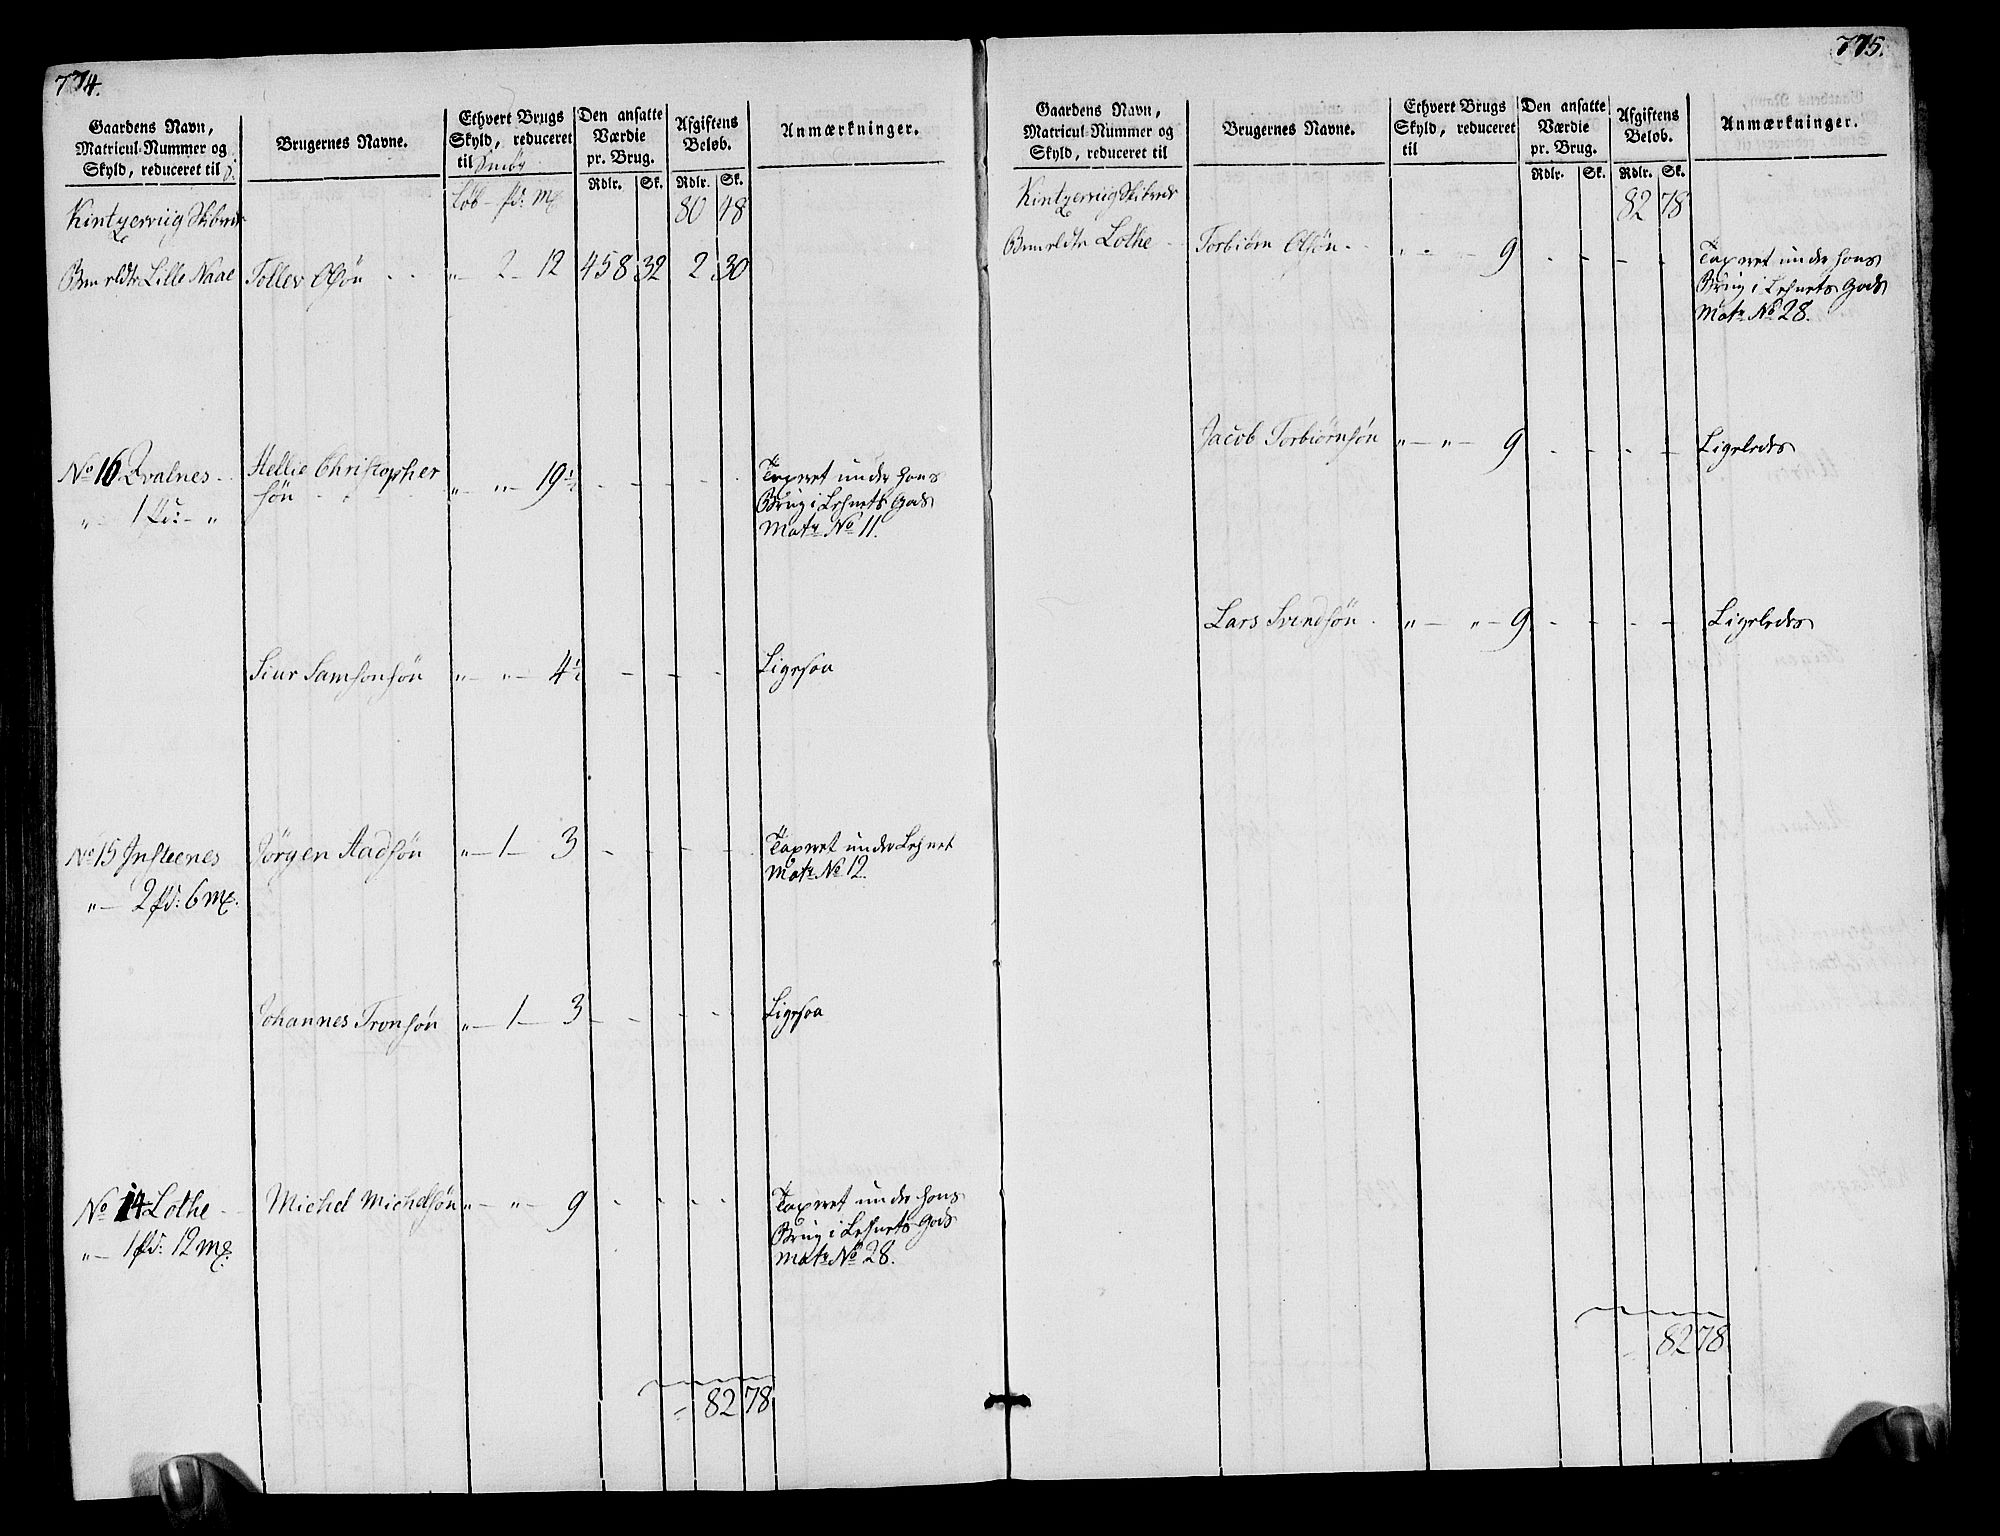 774.
Gaardens Navn,
Matricul-Nummer og
Skyld, reduceret til
Brugernes Navne.
Ethvert Brugs
Skyld, reduceret
til Smör
Den ansatte
Værdie
pr. Brug.
Rdlr. Sk.
Afgiftens
Beløb.
Rdlr. Sk.
Anmærkninger.
Löb - pd: mk
Kintzerviig Skibrede 80 48
Lille Naae Tollev Olsön - - „ - 2 - 12 458 32 2 30
No 16 Qvalnes - Hellie Christopher
sön - - - „ - „ - 19½ - - - -
„ - 1 pd: - „
Taxeret under hans
Brug i Lehnets Gods
Matr No 11.
Siur Samsonsön „ - „ - 4½ - - - - Ligesaa
No 15 Insteenes Jörgen Aadsön „ - 1 - 3 - - - -
„ - 2 pd: 6 mk.
Taxeret under Lehnet
Matr No 12
Johannes Tronsön „ - 1 - 3 - - - - Ligesaa
No 14 Lothe - Michel Michelsön „ - „ - 9 - - - -
„ - 1 pd: 12 mk.
Taxeret under hans
Brug i Lehnets Gods
Matr No 28.
82 78
775.
Gaardens Navn,
Matricul-Nummer og
Skyld, reduceret til
Brugernes Navne.
Ethvert Brugs
Skyld, reduceret
til
Den ansatte
Værdie
pr. Brug.
Rdlr. Sk.
Afgiftens
Beløb.
Rdlr. Sk.
Anmærkninger.
Kintzerviig Skibrede 82 78
Lothe - Torbiörn Olsön - - „ - - 9 - - - -
Taxeret under hans
Brug i Lehnets Gods
Matr No 28.
Jacob Torbiörnsön „ - „ - 9 - - - - Ligeledes
Lars Svendsön - „ - „ - 9 - - - - Ligeledes
82 78